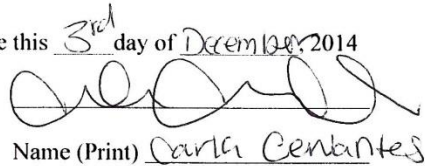 e this 3rd day of December, 2014
Name (Print) Carla Cervantes